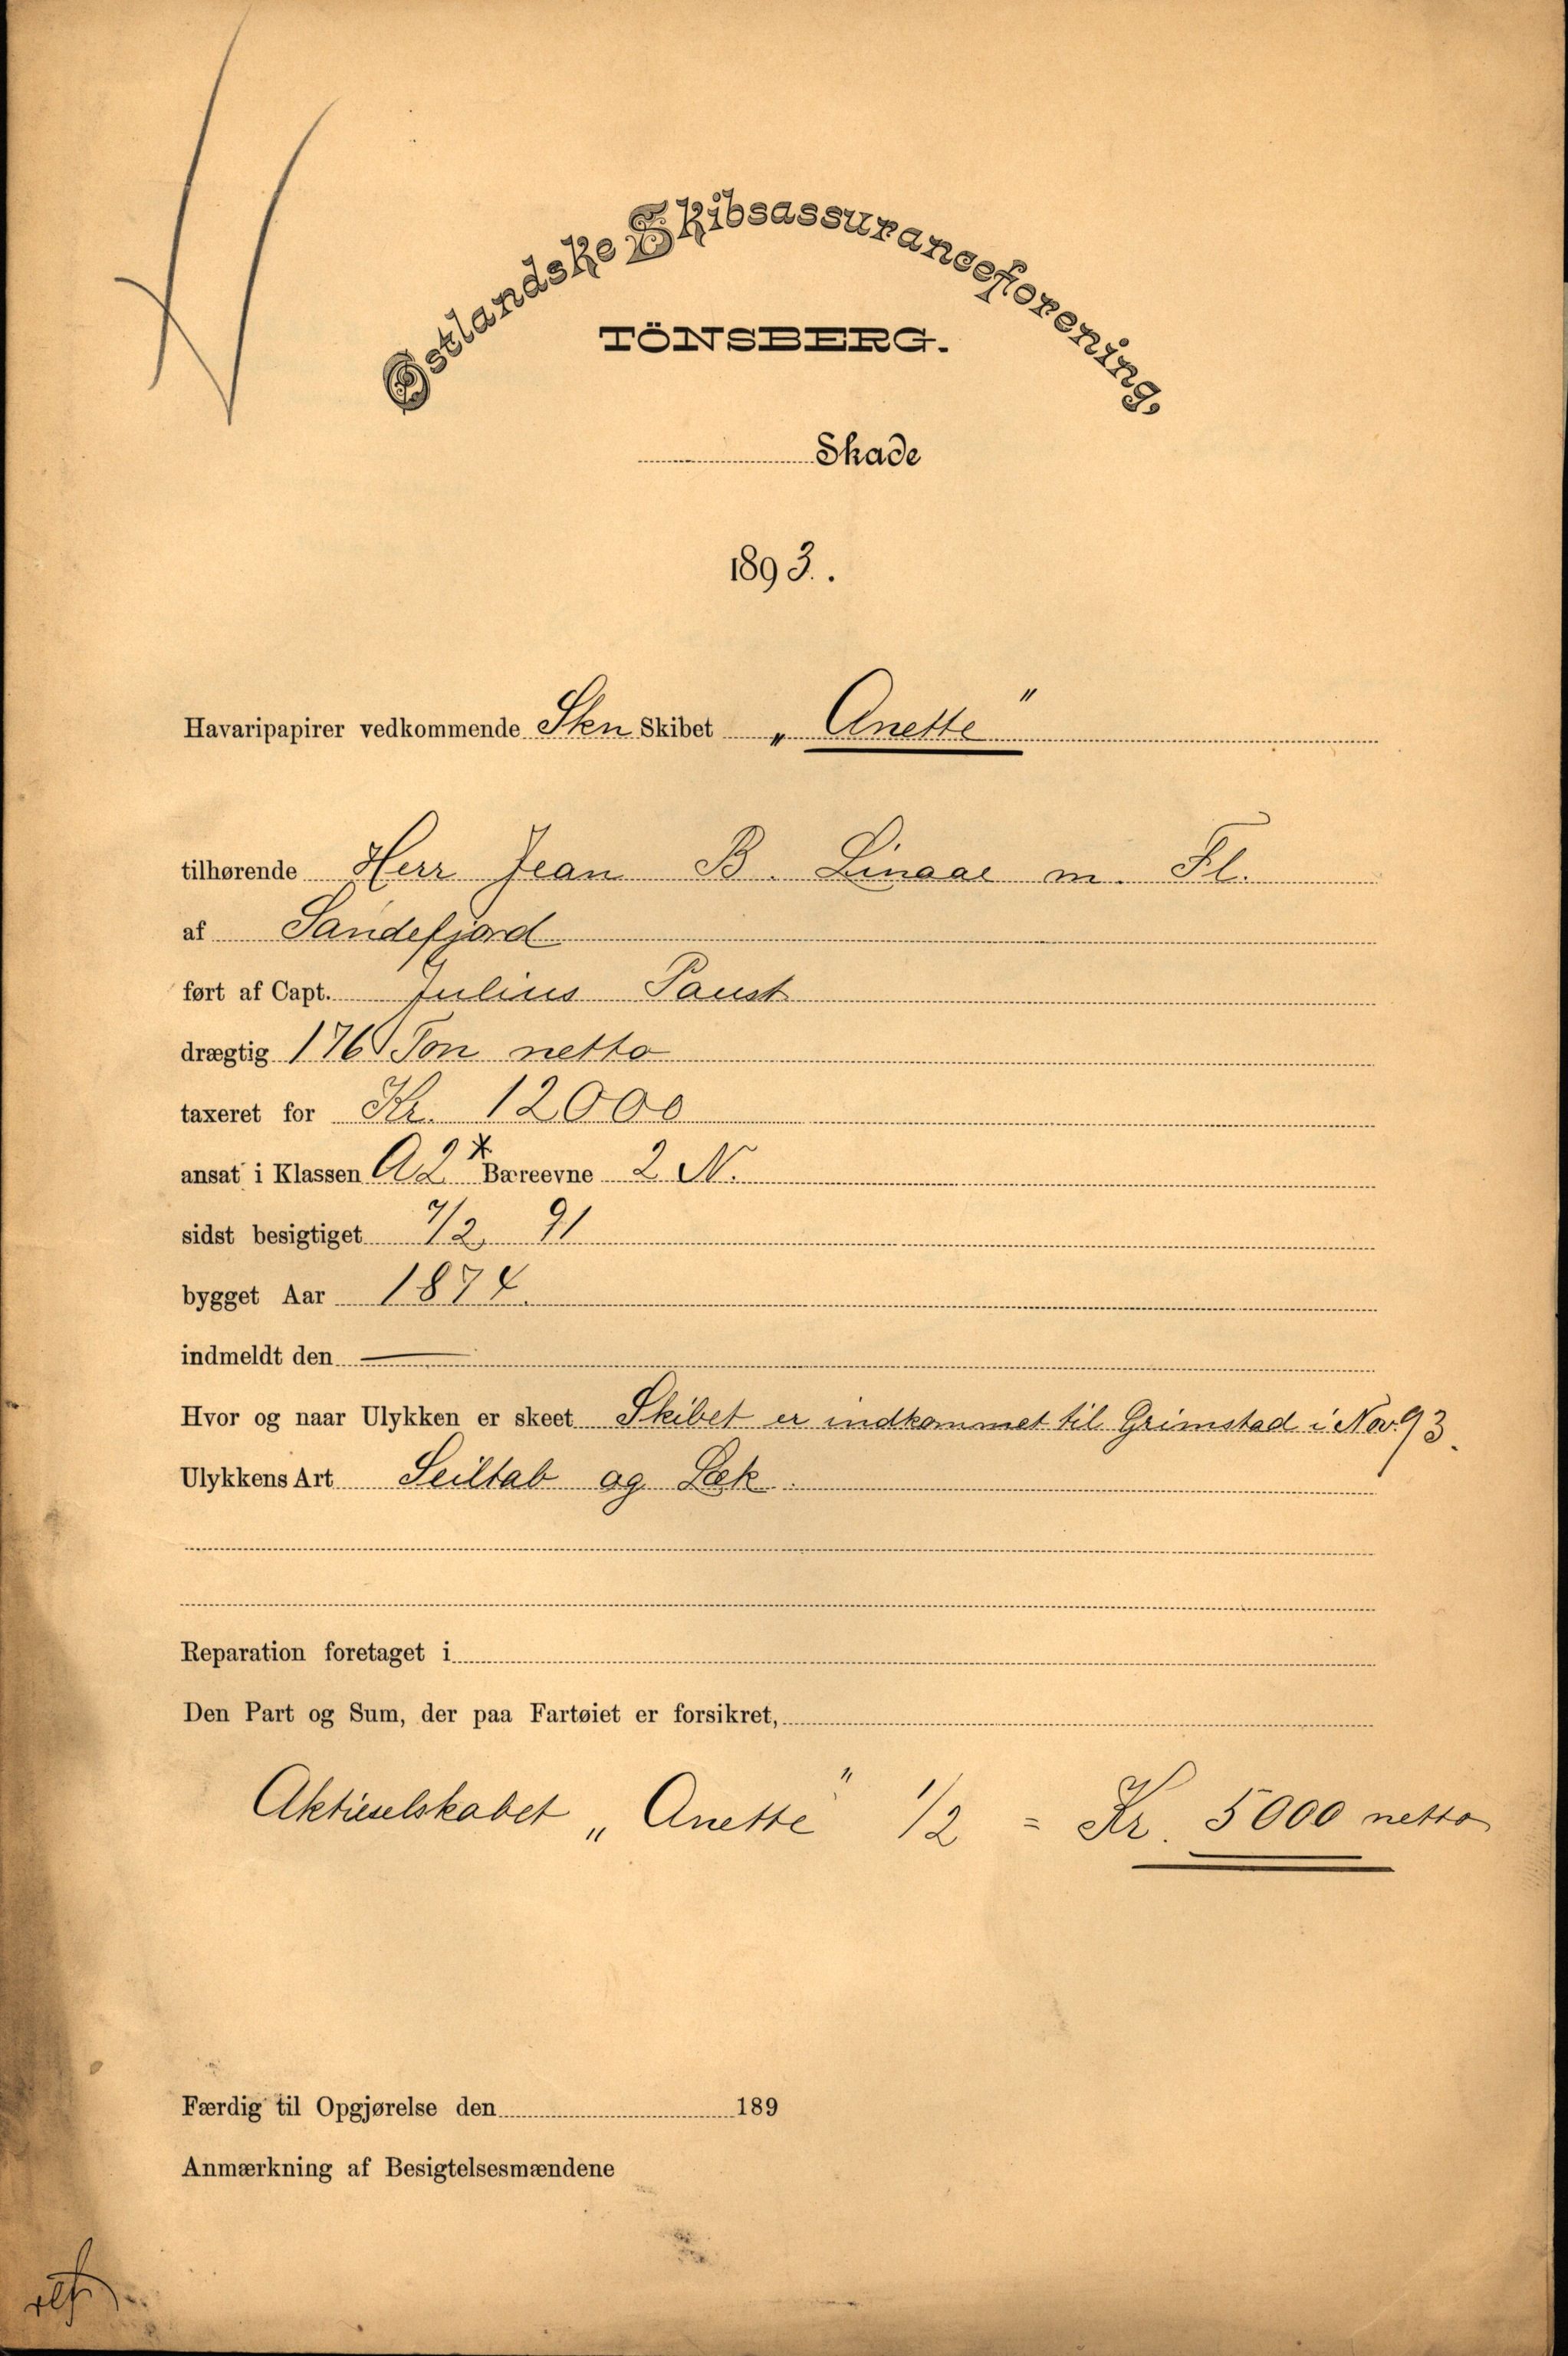 Østlandske Skibsassuranceforening,
TÖNSBERG.
Skade
1893.
Havaripapirer vedkommende Skn Skibet „Anette"
tilhørende Herr Jean B. Linaae m. Fl.
af Sandefjord
ført af Capt. Julius Paust
drægtig 176 Ton netto
taxeret for Kr. 12000
ansat i Klassen A2* Bæreevne 2 N.
sidst besigtiget 7/2 91
bygget Aar 1874.
indmeldt den —
Hvor og naar Ulykken er skeet Skibet er indkommet til Grimstad i Nov. 93.
Ulykkens Art Seiltab og Læk.
Reparation foretaget i
Den Part og Sum, der paa Fartøiet er forsikret,
Aktieselskabet „Anette" 1/2 = Kr. 5000 netto
Færdig til Opgjørelse den 189
Anmærkning af Besigtelsesmændene